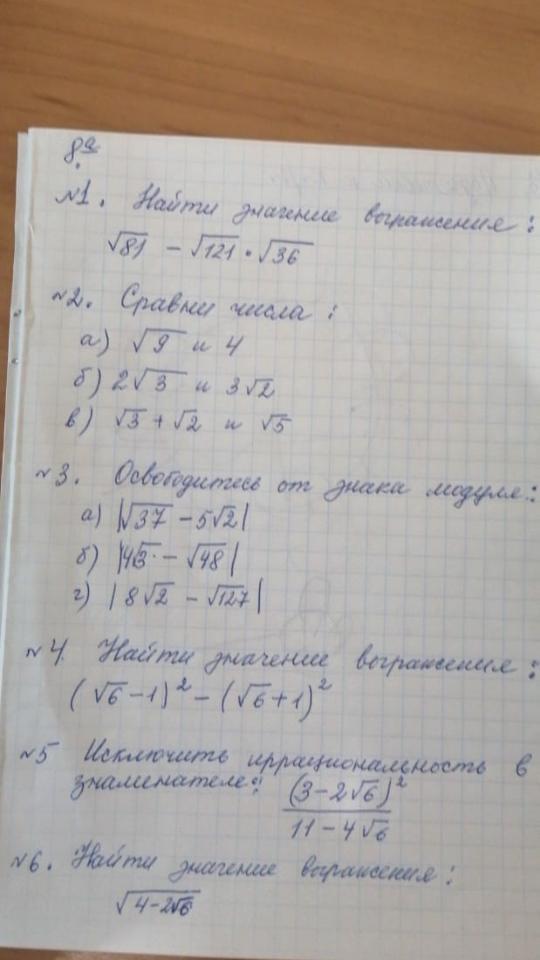 8ª.
№1. Найти значение выражения:
√81 - √121 · √36
№2. Сравни числа:
а) √9 и 4
б) 2√3 и 3√2
в) √3 + √2 и √5
№3. Освободитесь от знака модуля:
а) |√37 - 5√2|
б) |4√3 - √48|
г) |8√2 - √127|
№4. Найти значение выражения:
(√6-1)² - (√6+1)²
№5 Исключить иррациональность в
знаменателе: (3-2√6)²
11-4√6
№6. Найти значение выражения:
√4-2√6